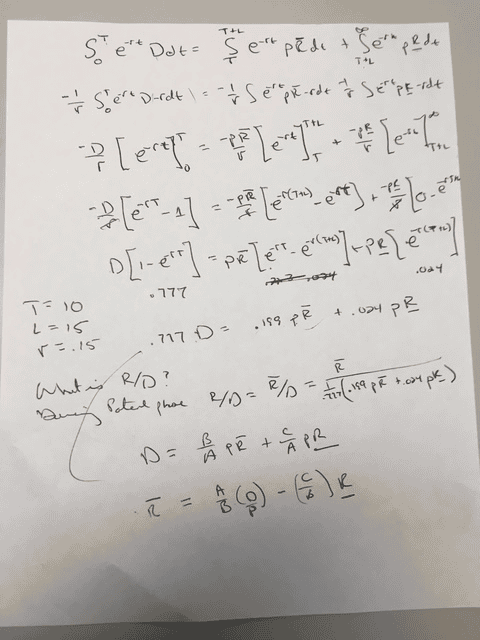 ∫₀ᵀ e^-rt D dt = ∫_T^T+L e^-rt p R̄ dt + ∫_T+L^∞ e^-rt p R̲ dt
-1/r ∫₀ᵀ e^-rt D -r dt = -1/r ∫ e^-rt p R̄ -r dt -1/r ∫ e^-rt p R̲ -r dt
-D/r [e^-rt]₀ᵀ = -pR̄/r [e^-rt]_T^T+L + -pR̲/r [e^-rt]_T+L^∞
-D/r [e^-rT - 1] = -pR̄/r [e^-r(T+L) - e^-rT] + -pR̲/r [0 - e
D[1 - e^-rT] = pR̄ [e^-rT - e^-r(T+L)] + pR̲ [e^-r(T+L)]
.777 .024
T = 10
L = 15
r = .15
.777 D = .199 p R̄ + .024 p R̲
What is R/D?
During Patent phase R/D = R̄/D = R̄ / 1/.777 (.199 p R̄ + .024 p R̲)
D = B/A p R̄ + C/A p R̲
R̄ = A/B (D/p) - (C/B) R̲